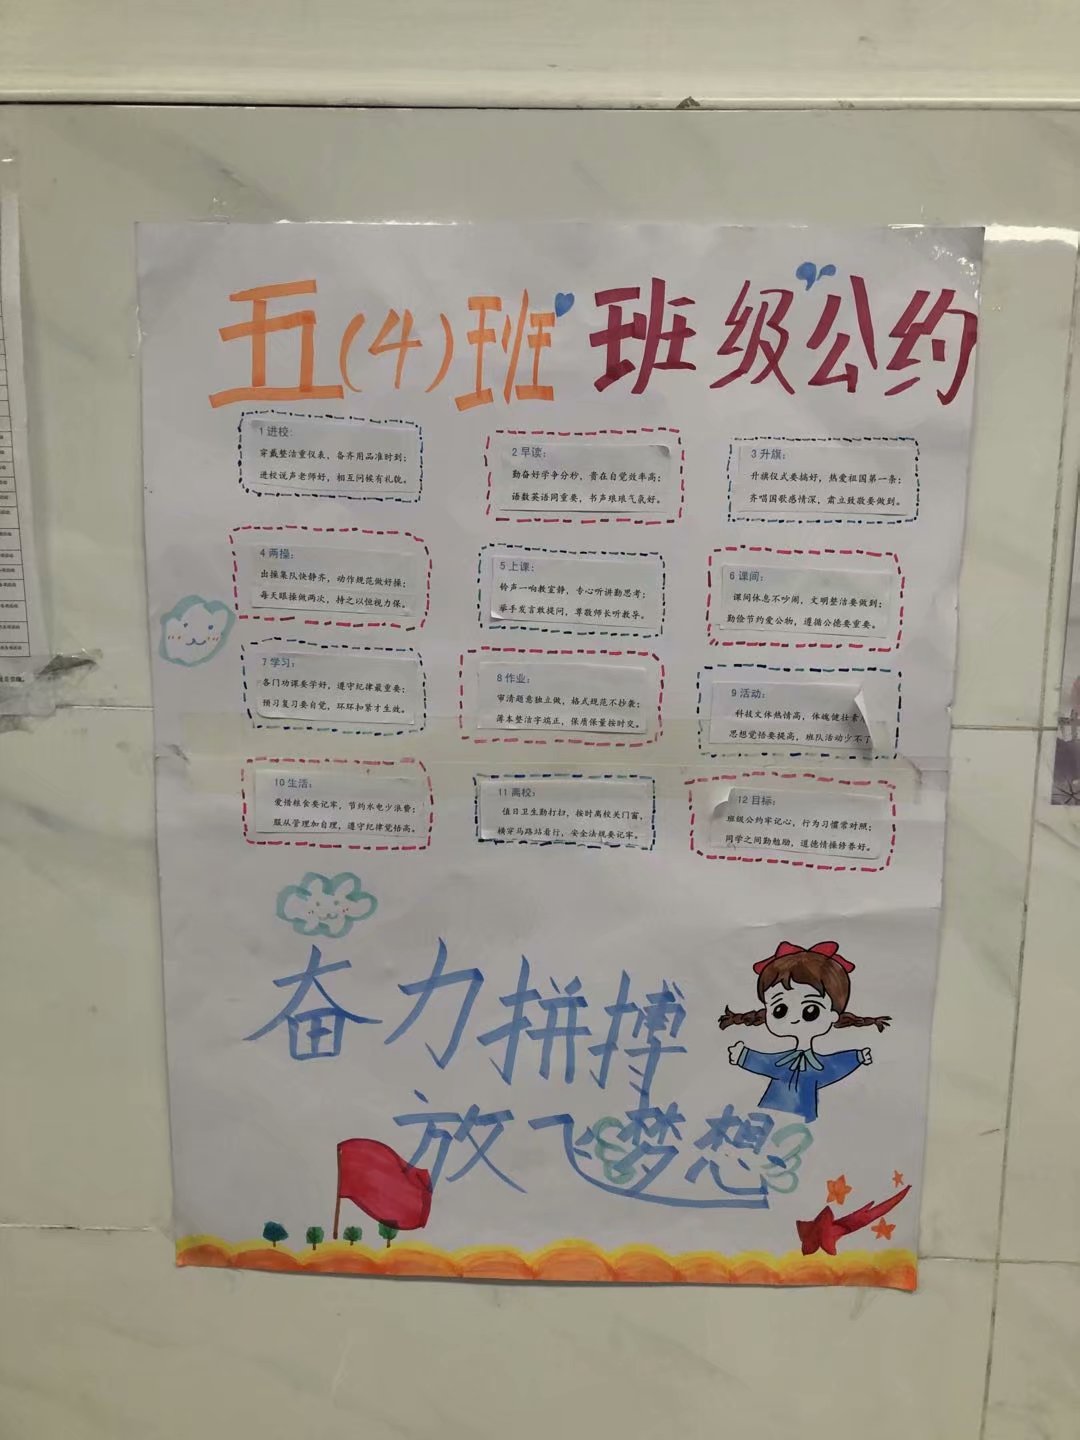 五(4)班 班级公约
1 进校:
穿戴整洁重仪表，备齐用品准时到；
进校说声老师好，相互问候有礼貌。
2 早读:
勤奋好学争分秒，贵在自觉效率高；
语数英语同重要，书声琅琅气氛好。
3 升旗:
升旗仪式要搞好，热爱祖国第一条；
齐唱国歌感情深，肃立致敬要做到。
4 两操:
出操集队快静齐，动作规范做好操；
每天眼操做两次，持之以恒视力保。
5 上课:
铃声一响教室静，专心听讲勤思考；
举手发言敢提问，尊敬师长听教导。
6 课间:
课间休息不吵闹，文明整洁要做到；
勤俭节约爱公物，遵循公德要重要。
7 学习:
各门功课要学好，遵守纪律最重要；
预习复习要自觉，环环扣紧才生效。
8 作业:
审清题意独立做，格式规范不抄袭；
簿本整洁字端正，保质保量按时交。
9 活动:
科技文体热情高，体魄健壮素
思想觉悟要提高，班队活动少不了
10 生活:
爱惜粮食要记牢，节约水电少浪费；
服从管理加自理，遵守纪律觉悟高。
11 离校:
值日卫生勤打扫，按时离校关门窗，
横穿马路站看行，安全法规要记牢。
12 目标:
班级公约牢记心，行为习惯常对照；
同学之间勤勉励，道德情操修养好。
奋力拼搏
放飞梦想